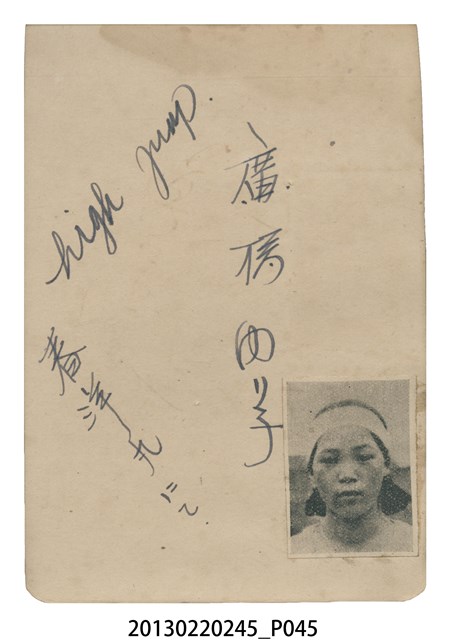 high jump.
廣橋ゆり子
春洋丸にて
20130220245_P045